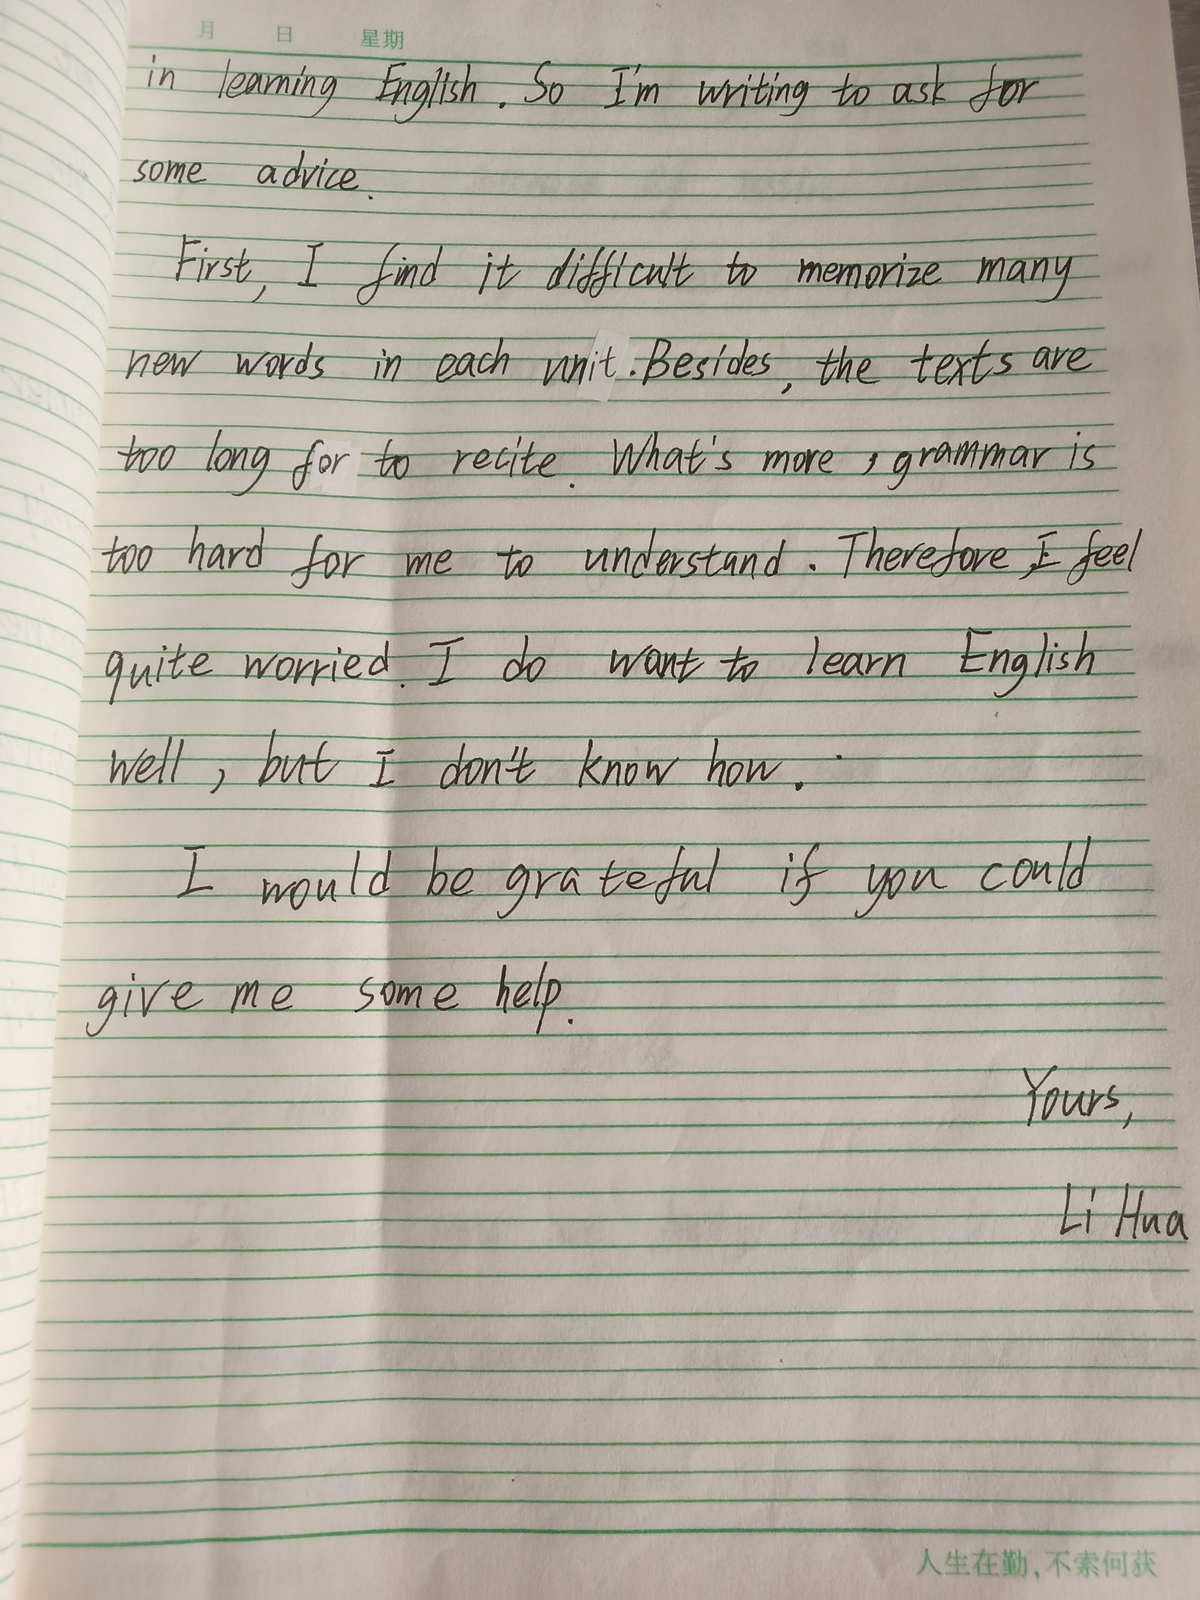 月 日 星期
in learning English. So I'm writing to ask for
some advice.
First, I find it difficult to memorize many
new words in each unit. Besides, the texts are
too long for to recite. What's more, grammar is
too hard for me to understand. Therefore, I feel
quite worried. I do want to learn English
well, but I don't know how.
I would be grateful if you could
give me some help.
Yours,
Li Hua
人生在勤,不索何获